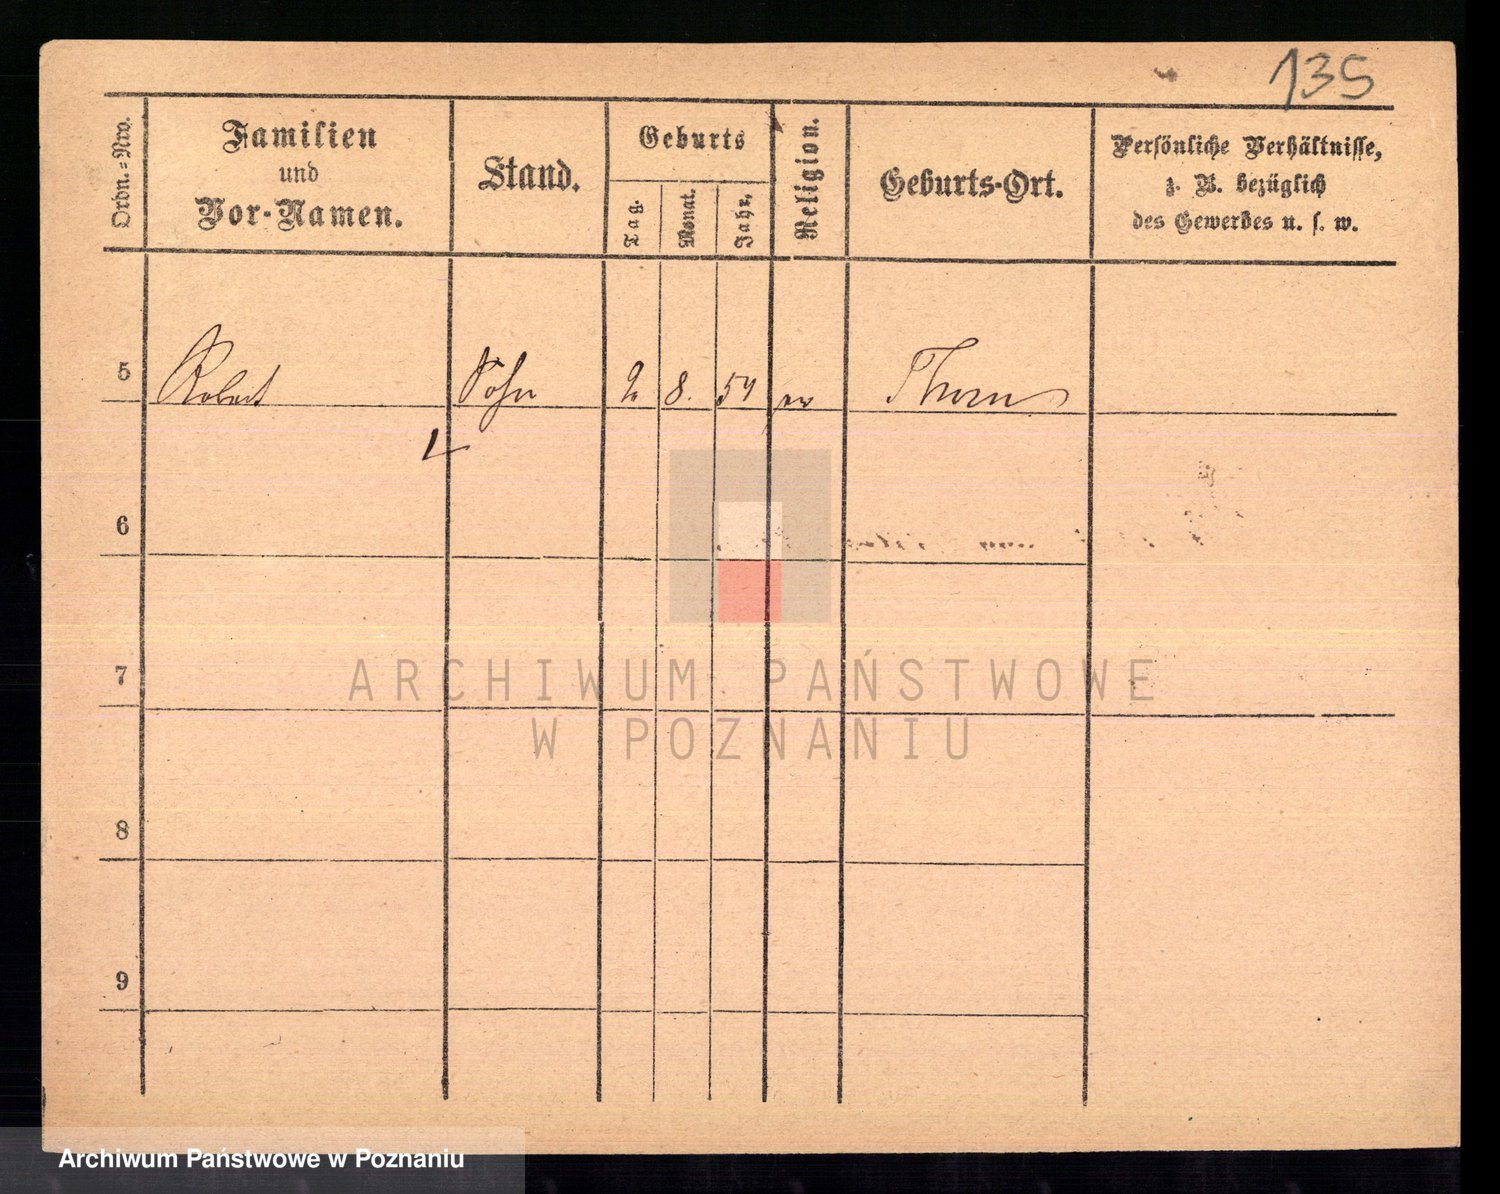 135
Ordn.=Nro.
Familien
und
Vor-Namen.
Stand.
Geburts
Tag.
Monat.
Jahr.
Religion.
Geburts-Ort.
Persönliche Verhältnisse,
z. B. bezüglich
des Gewerbes u. s. w.
5 Robert Sohn 2 8. 54 ev Thorn
6
7
8
9
ARCHIWUM PAŃSTWOWE
W POZNANIU
Archiwum Państwowe w Poznaniu